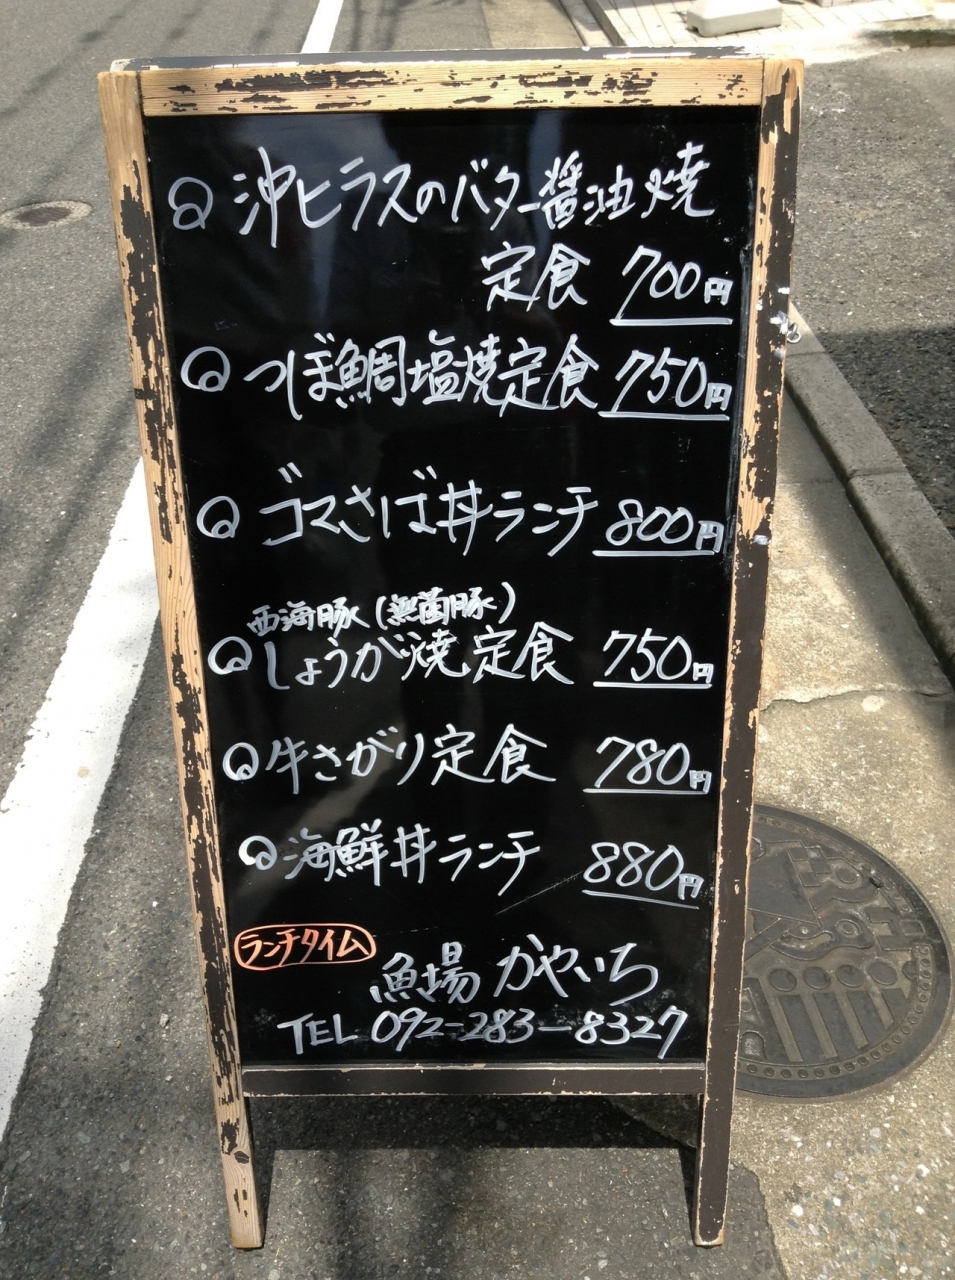 沖ヒラスのバター醤油焼
定食 700円
つぼ鯛塩焼定食 750円
ゴマさば丼ランチ 800円
西海豚(無菌豚)
しょうが焼定食 750円
牛さがり定食 780円
海鮮丼ランチ 880円
ランチタイム
魚場 かやいち
TEL 092-283-8327